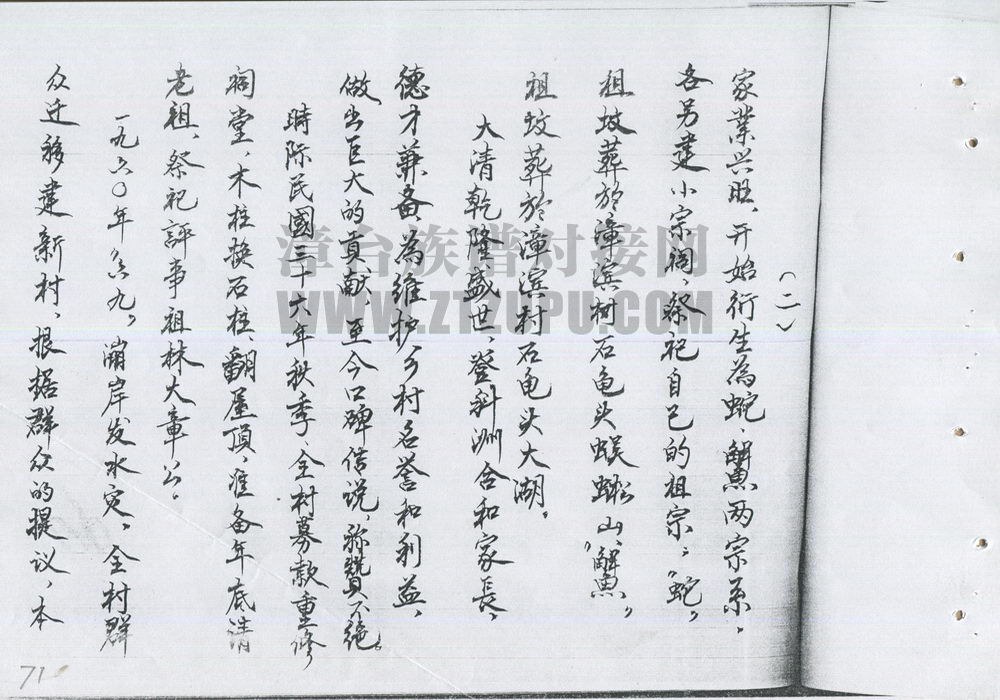 (二)
家業兴旺、开始衍生為蛇、鱟两宗系，
各另建小宗祠、祭祀自己的祖宗，“蛇”
祖坟葬於漳滨村石龟头蜈蚣山，“鱟”
祖坟葬於漳滨村石龟头大湖。
大清乾隆盛世，登科洲合和家長，
德才兼备，為维护乡村名誉和利益，
做出巨大的貢献，至今口碑传说，称贊不绝。
時际民國三十六年秋季、全村募款重修
祠堂、木柱换石柱、翻屋顶，准备年底清
老祖、祭祀評事祖林大章公。
一九六〇年“六九”满岸发水灾，全村群
众迁移建新村、根据群众的提议，本
漳台族谱对接网
WWW.ZTZUPU.COM
71